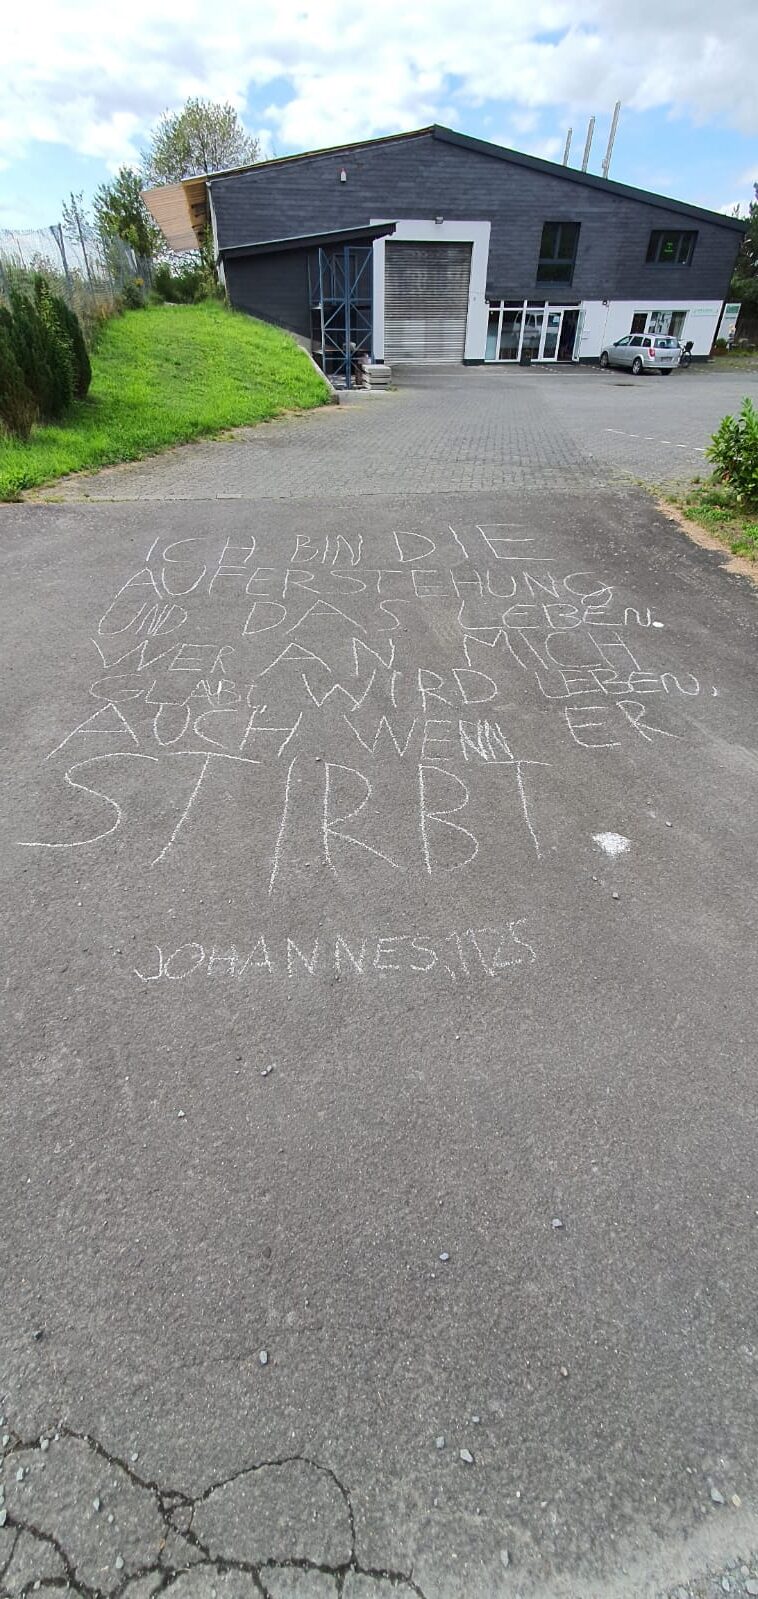 ICH BIN DIE
AUFERSTEHUNG
UND DAS LEBEN.
WER AN MICH
GLAUBT, WIRD LEBEN,
AUCH WENN ER
STIRBT.
JOHANNES, 11,25